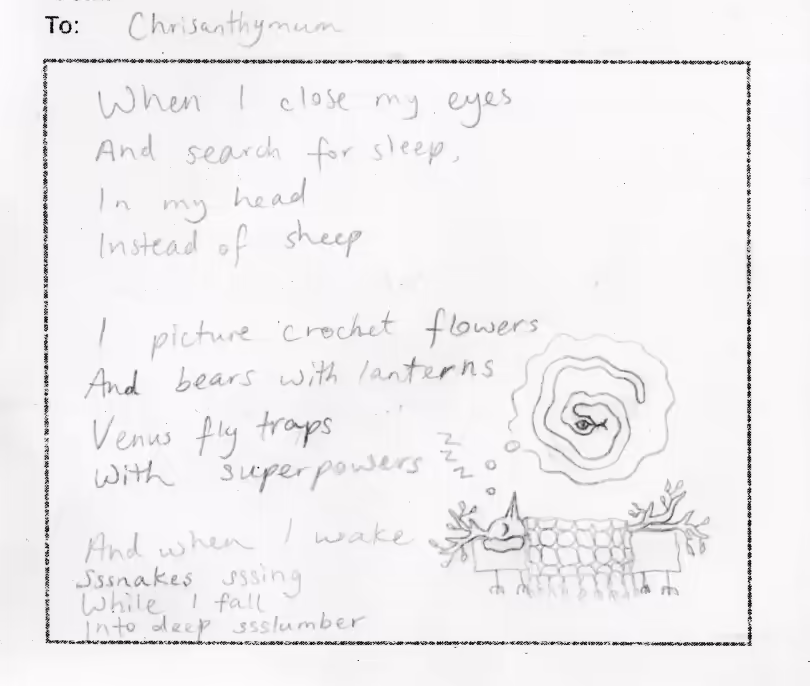 To: Chrisanthymum
When I close my eyes
And search for sleep,
In my head
Instead of sheep
I picture crochet flowers
And bears with lanterns
Venus fly traps
With superpowers
z
z
z
And when I wake
Sssnakes sssing
While I fall
Into deep ssslumber